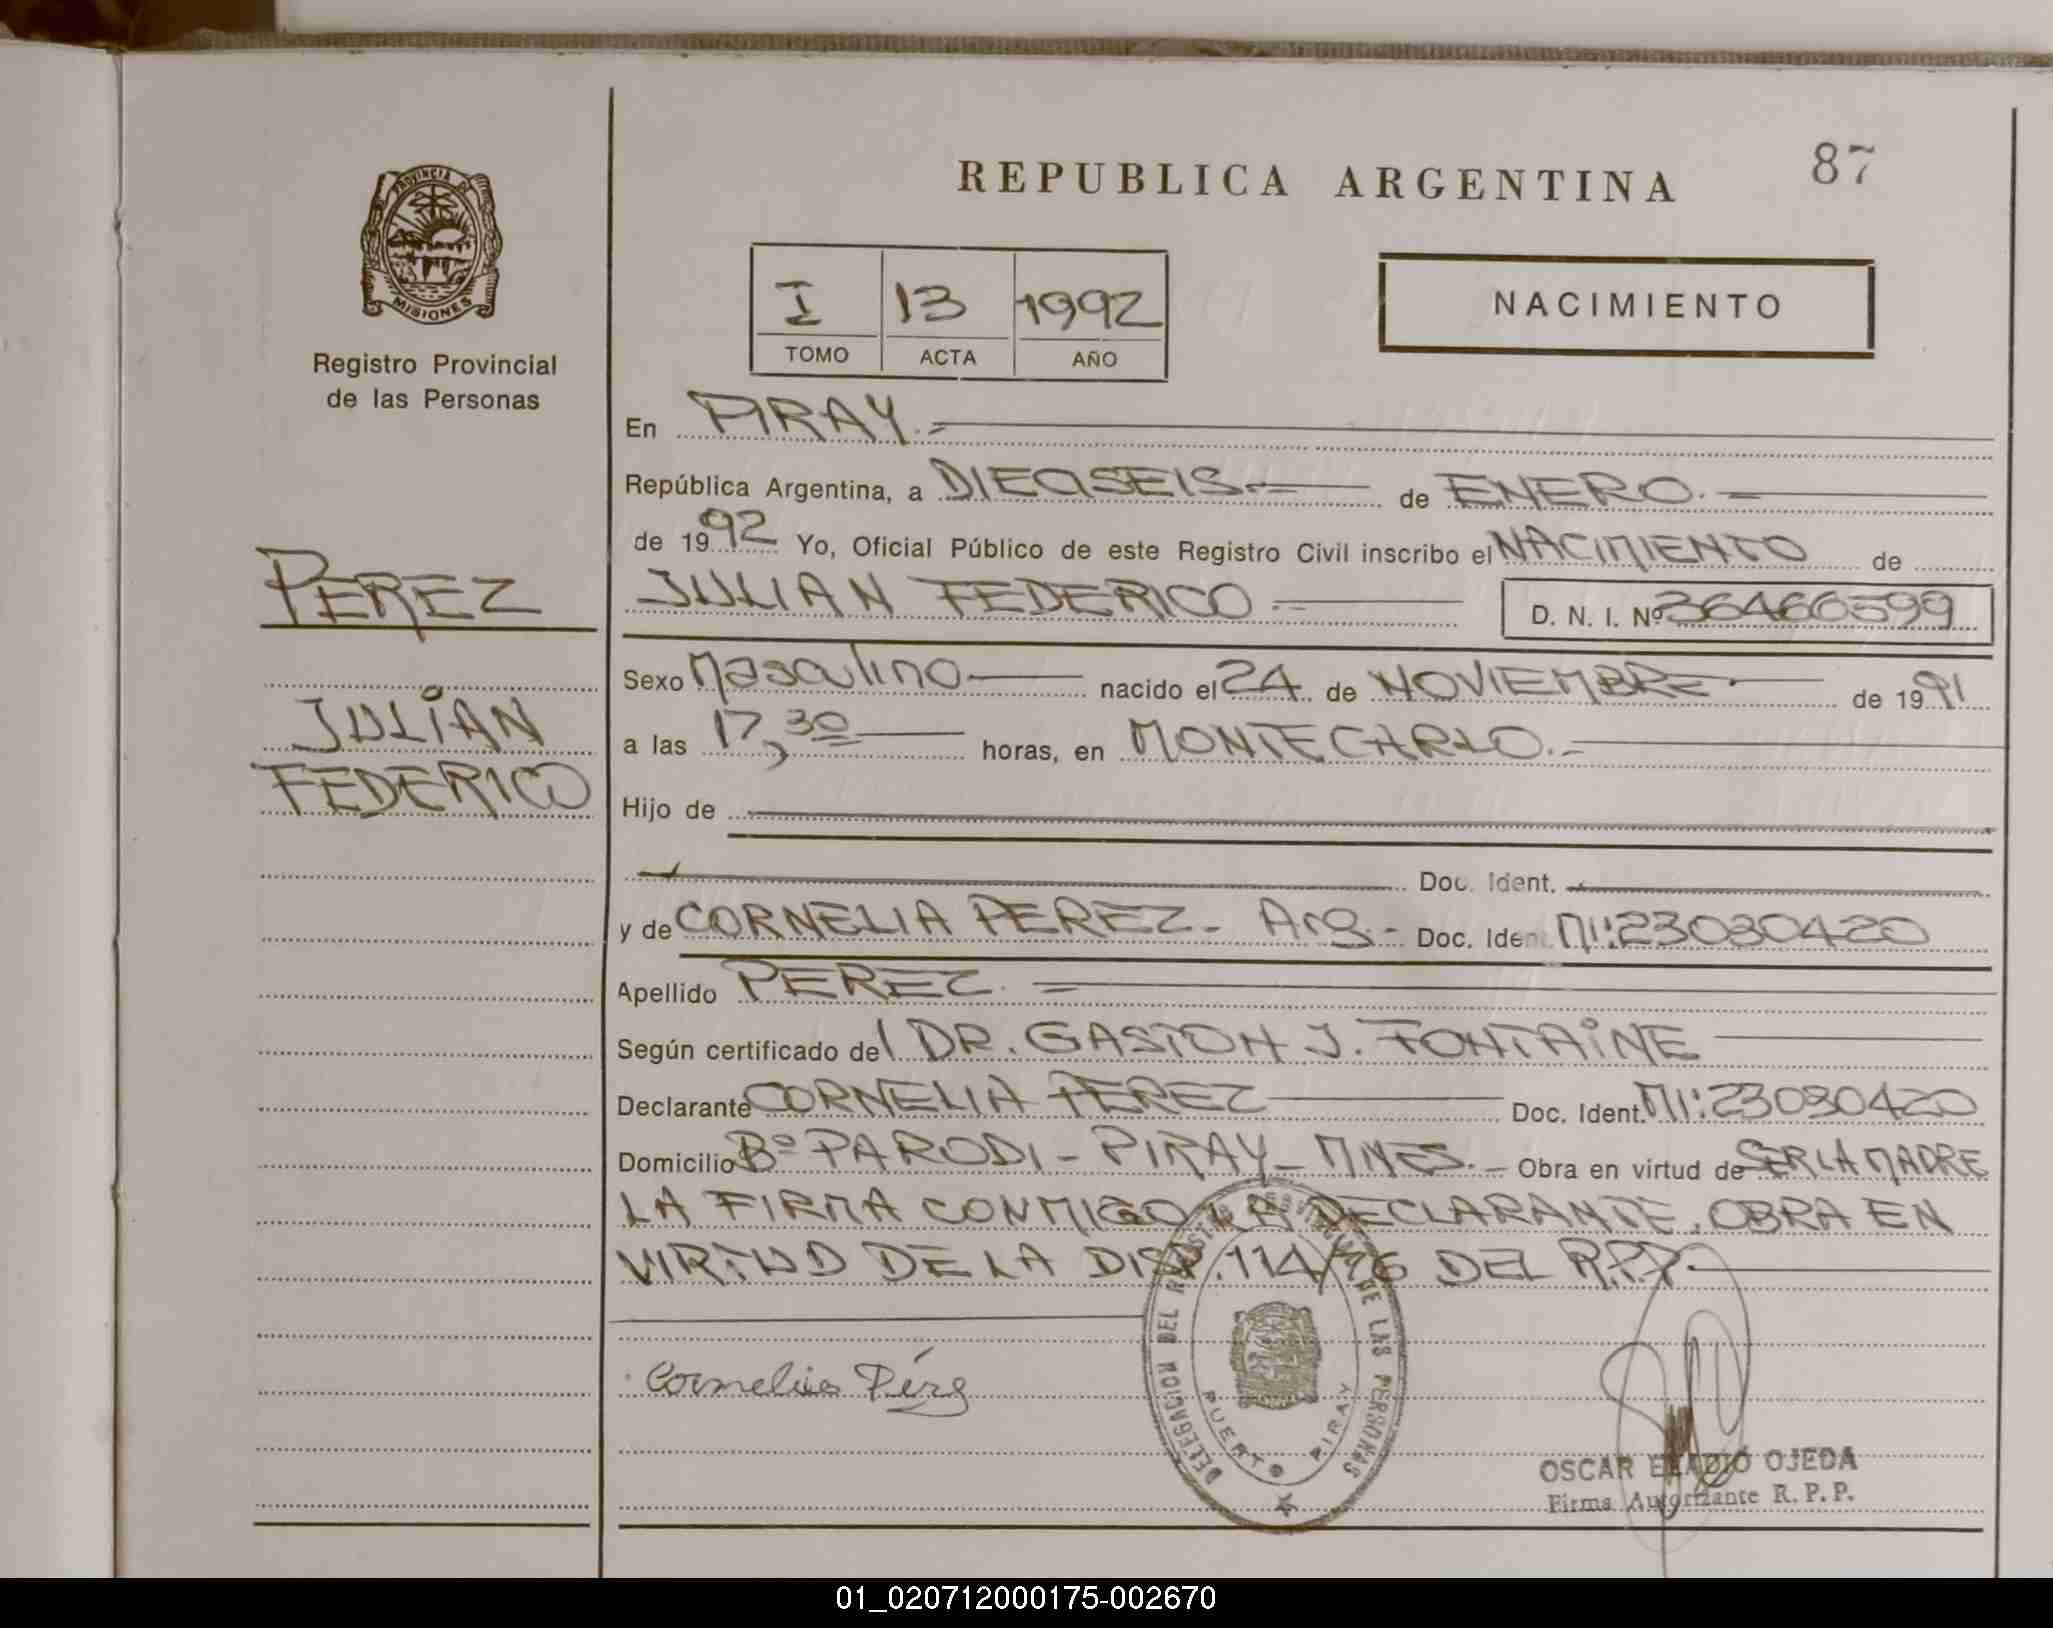 87
REPUBLICA ARGENTINA
PROVINCIA DE
MISIONES
Registro Provincial
de las Personas
I 13 1992
TOMO ACTA AÑO
NACIMIENTO
PEREZ
JULIAN
FEDERICO
En PIRAY.=
República Argentina, a DIECISEIS.= de ENERO.=
de 1992 Yo, Oficial Público de este Registro Civil inscribo el NACIMIENTO de
JULIAN FEDERICO.= D. N. I. Nº 36466599
Sexo Masculino nacido el 24 de NOVIEMBRE.- de 1991
a las 17,30 horas, en MONTECARLO.=
Hijo de
Doc. Ident.
y de CORNELIA PEREZ - Arg.- Doc. Ident. MI:23030420
Apellido PEREZ.=
Según certificado del DR. GASTON J. FONTAINE
Declarante CORNELIA PEREZ Doc. Ident. MI:23030420
Domicilio Bº PARODI - PIRAY - MNES.- Obra en virtud de SER LA MADRE
LA FIRMA CONMIGO LA DECLARANTE. OBRA EN
VIRTUD DE LA DISP. 114/76 DEL R.P.P.-
Cornelia Pérez
DELEGACION DEL REGISTRO PROVINCIAL DE LAS PERSONAS
PUERTO PIRAY
OSCAR ELADIO OJEDA
Firma Autorizante R. P. P.
01_020712000175-002670